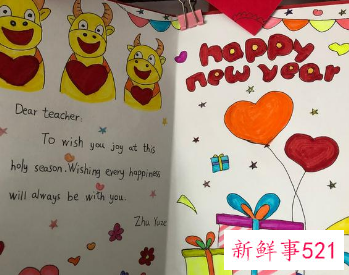 Dear teacher:
To wish you joy at this
holy season. Wishing every happiness
will always be with you.
Zhu
happy
new year
新鲜事521